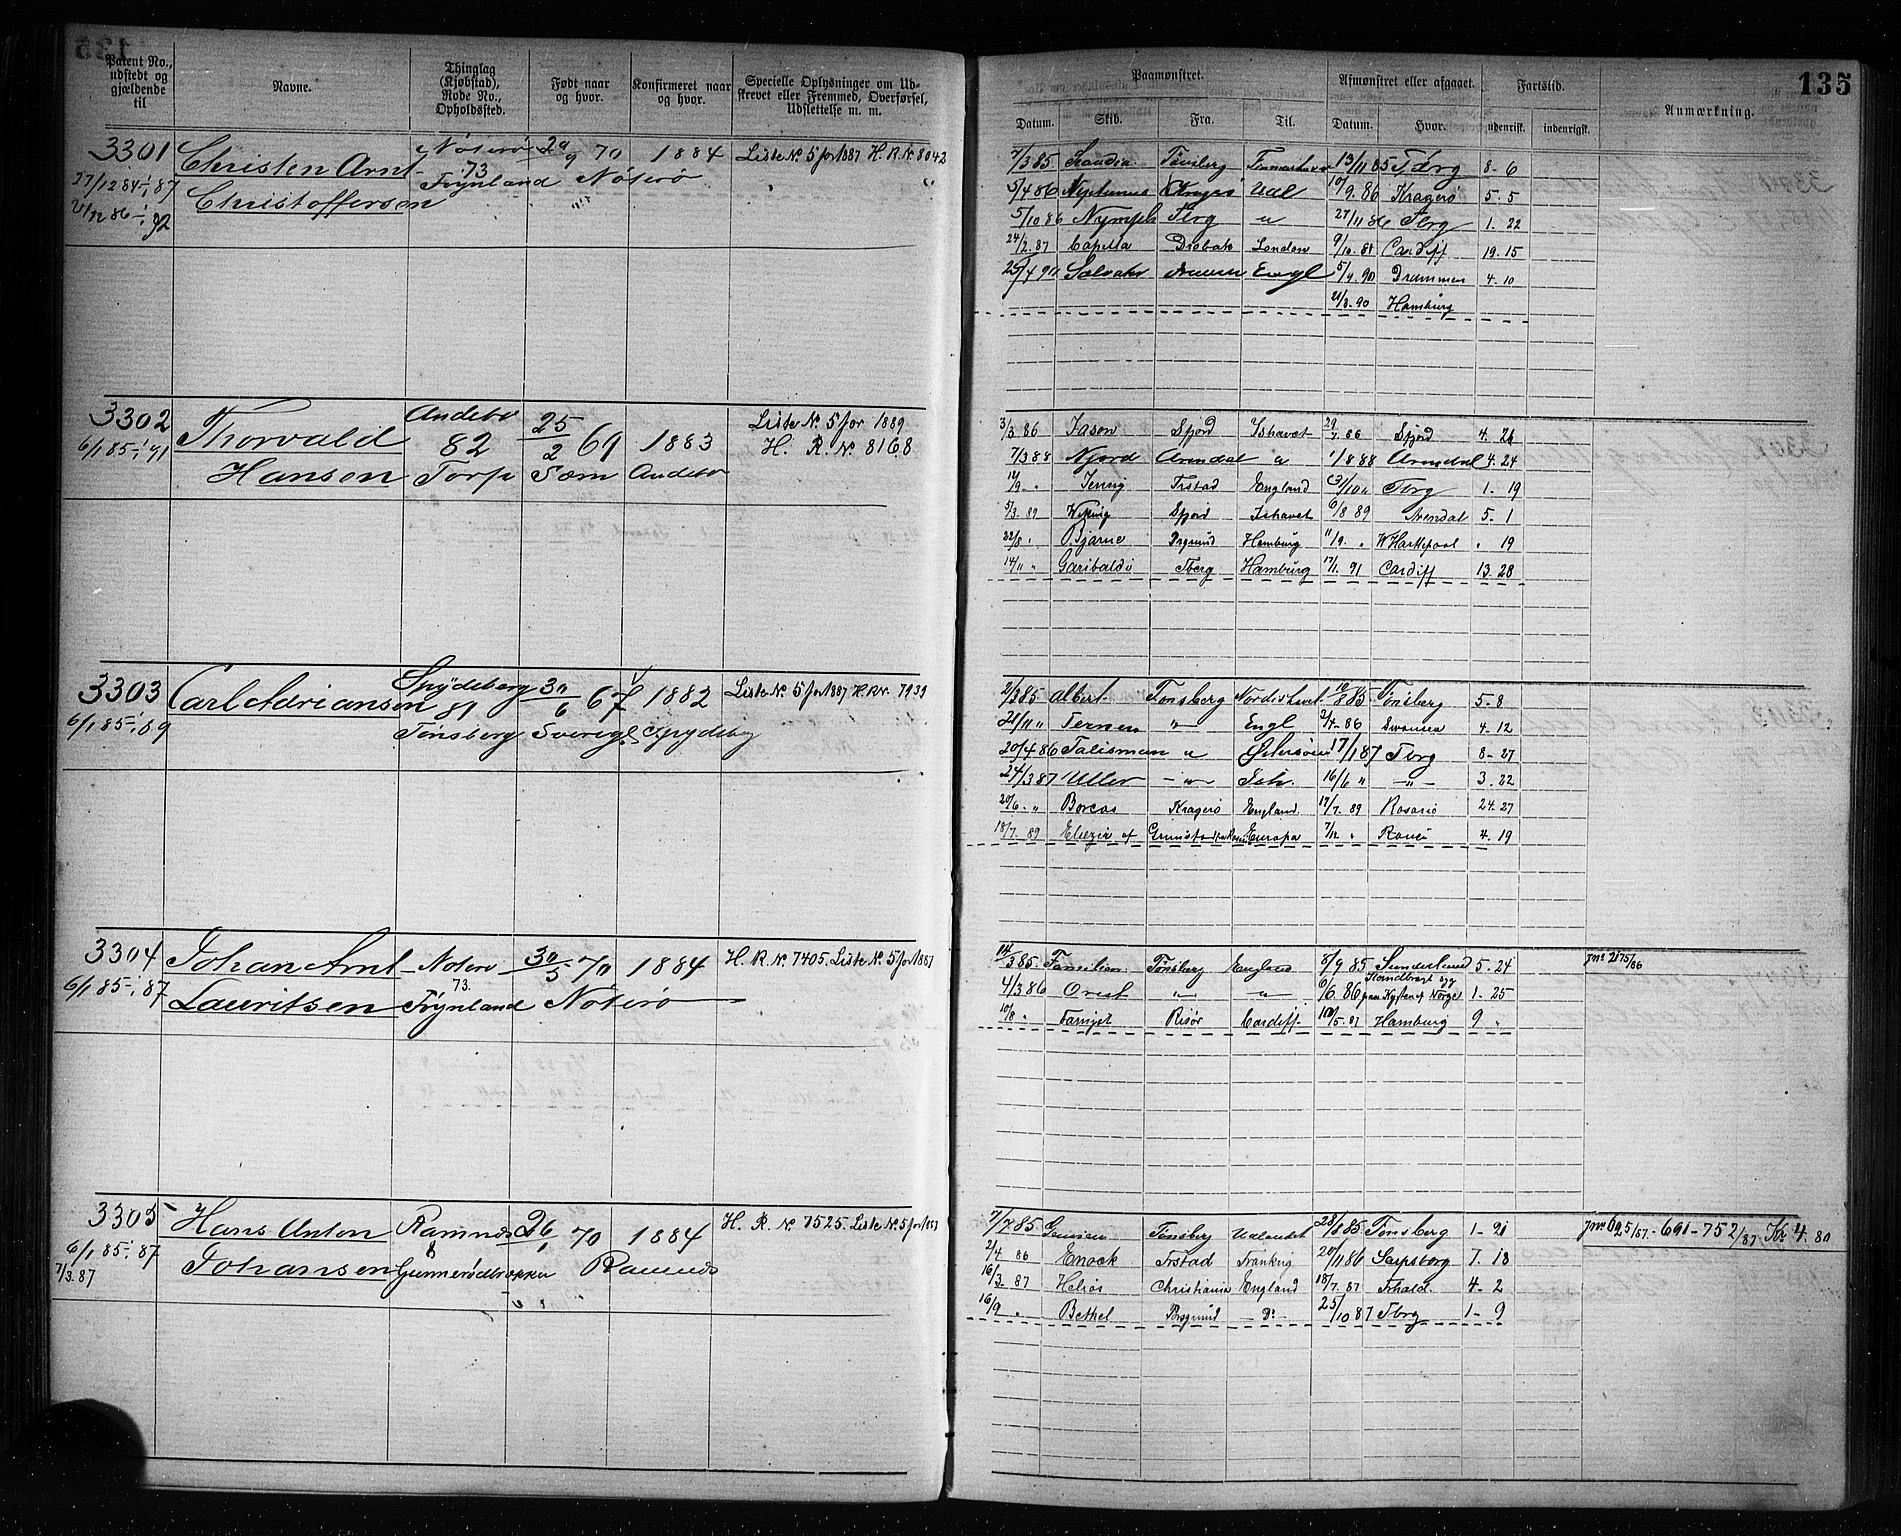 135
Patent No., udstedt og gjældende til
Navne.
Thinglag (Kjøbstad), Rode No., Opholdssted.
Født naar og hvor.
Konfirmeret naar og hvor.
Specielle Oplysninger om Udskrevet eller Fremmed, Overførsel, Udslettelse m. m.
Paamønstret.
Afmønstret eller afgaaet.
Fartstid.
Anmærkning.
Datum. Skib. Fra. Til. Datum. Hvor. udenrisk. indenrigsk.
3301 Christen Arnt Nøterö 70 1884 Liste No 5 for 1887 H. R. No 8042
27/12 84-1/1 87 Christoffersen 73 Fynland Nøterö
92
7/3 85 Tønsberg 13/11 85 8-6
5/4 86 Neptunus Kragerö 10/9. 86 Kragerö 5-5
5/10 86 Nymph Tbrg " 27/11 86 Tbrg 1. 22
24/2. 87 Capella London 9/10. 88 Cardiff 19. 15
Engl 5/9. 90 Drammen 4-10
21/3. 90 Hamburg
3302 Thorvald Andebo 25/2 69 1883 Liste No. 5 for 1889
6/1 85-1/1 91 Hansen 82 Torp Sœm Andebo H. R. No. 8168
3/3 86 Jason Sfjord Ishavet 29/7. 86 Sfjord 4. 26
7/3 88 Njord Arendal " 1/8 88 Arendal 4. 24
Jenny Frstad England Tbrg 1- 19
5/3. 89 Viking Sfjord Ishavet 6/8 89 Arendal 5- 1
Bjarne Prsgrund Hamburg 11/9. " W Hartlepool " 19
14/11 " Garibaldi Tberg Hamburg 17/1. 91 Cardiff 13. 28
3303 Carl Adriansen Spydeberg 30/6 67 1882 Liste No 5 for 1887 H. R. Nr. 7939
6/1 85-1/1 89 81 Tønsberg Sverige Spydebg
2/3 85 Albert Tønsberg Nordishavet 85 Tønsberg 5-8
21/11 " Ternen " Engl 86 Swansea 4-12
20/4 86 Talisman " Østersöen 17/1 87 Tbrg 8-27
24/3 87 Uller -"- Ish. 16/6 " -"- 3. 22
20/6. " Boreas Kragerö England. 17/7. 89 Rosario 24. 27
18/7. 89 Eliezer af Grimstad Europa 7/12 " Rouen 4. 19
3304 Johan Arnt Noterö 30/5 70 1884 H. R. No. 7405. Liste No. 5 for 1887
6/1 85-1/1 87 Lauritsen 73. Fynland Nöterö
14/3 85 Familien Tønsberg England 8/9. 85 Sunderland 5. 24 jnr 2175/86
4/3 86 Orest " " 6/6. 86 paa Kysten af Norge 1. 25
10/8 " Risör Cardiff. 87 Hamburg 9 "
3305 Hans Anton Ramnæs 26/1 70 1884 H. R. No. 7525. Liste No. 5 for 1887
6/1 85-1/1 87 Johansen 8 Ramnæs
7/3. 87
7/7 85 Tønsberg Udlandet 28/8 85 Tønsberg 1- 21 jnr 695/87. - 691 - 752/87 Kr 4. 80
2/4 86 Enock Frstad Frankrig 20/11 86 Sarpsborg 7. 18
16/3. 87 Helios Christiania England 18/7. 87 Frhald. 4- 2
16/9 " Bethel Porsgrund Do 25/10 87 Tbrg 1- 9